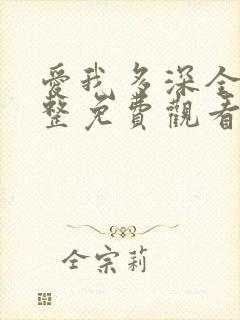 愛我多深全
整免費觀看
仝宗莉